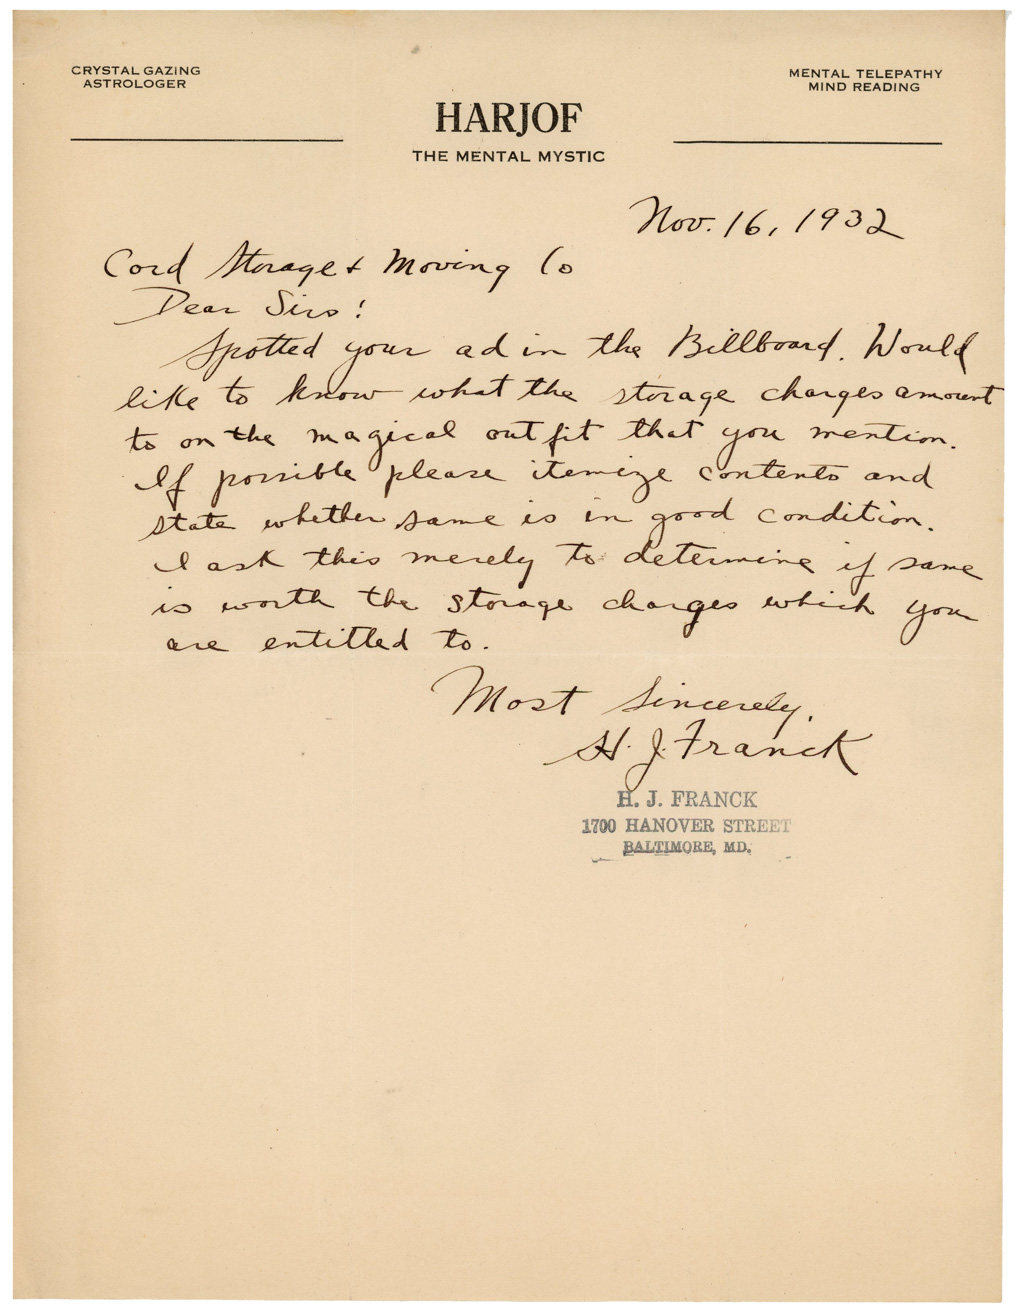 CRYSTAL GAZING
ASTROLOGER
MENTAL TELEPATHY
MIND READING
HARJOF
THE MENTAL MYSTIC
Nov. 16, 1932
Cord Storage & Moving Co
Dear Sirs!
Spotted your ad in the Billboard. Would
like to know what the storage charges amount
to on the magical outfit that you mention.
If possible please itemize contents and
state whether same is in good condition.
I ask this merely to determine if same
is worth the storage charges which you
are entitled to.
Most Sincerely,
H. J. Franck
H. J. FRANCK
1700 HANOVER STREET
BALTIMORE, MD.